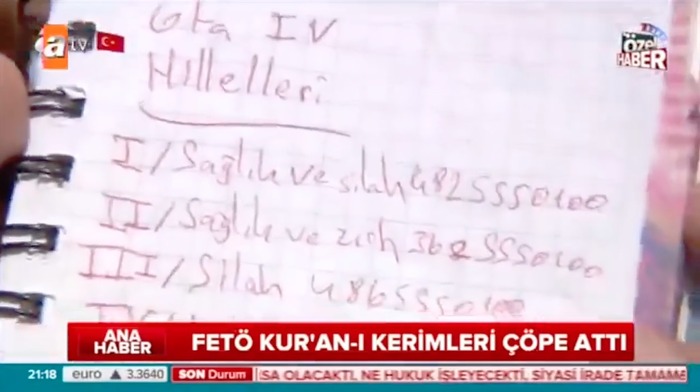 a tv
ÖZEL HABER
Gta IV
Hıllelleri
I/Sağlık ve silah 4825550100
II/Sağlık ve zırh 3625550100
III/Silah 4865550100
ANA HABER
FETÖ KUR'AN-I KERİMLERİ ÇÖPE ATTI
21:18 euro ▲ 3.3640 SON Durum SA OLACAKTI, NE HUKUK İŞLEYECEKTİ, SİYASİ İRADE TAMAME